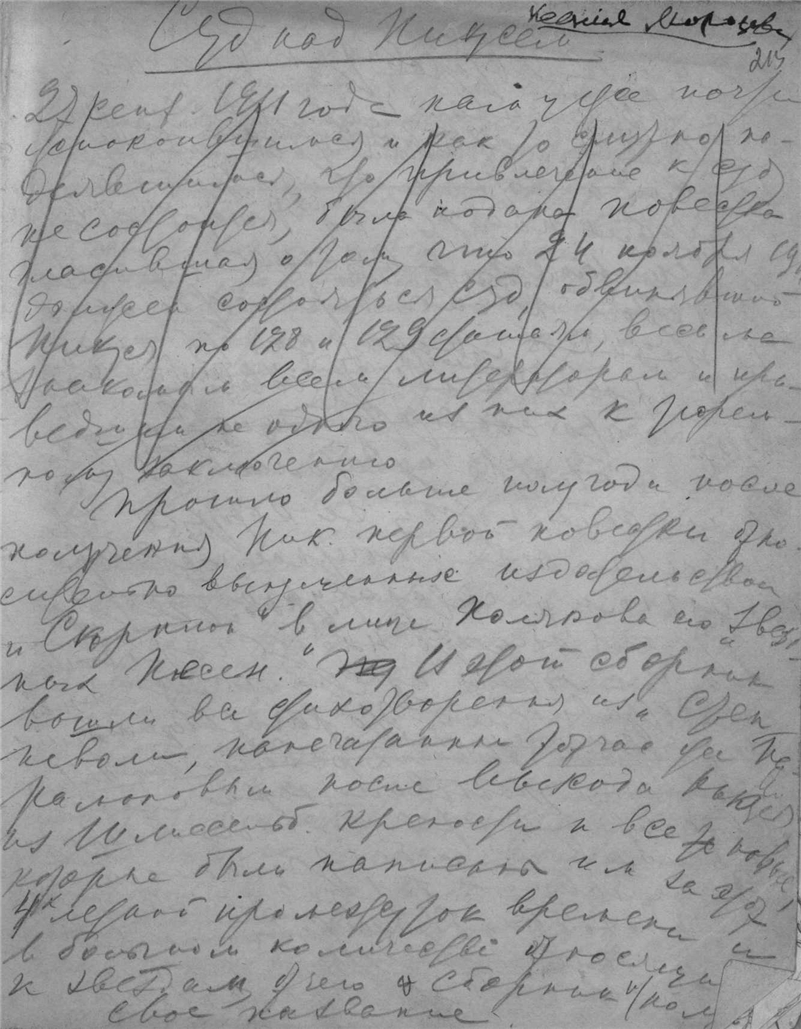 Ксения Морозова
Суд над Никусем
217
27 сент. 1911 года когда уже почти
успокоившимся и как то смутно на-
деявшимся, что привлечение к суду
не состоится, была подана повестка
гласившая о том, что 24 ноября
состояться суд, обвинявший
Никуся по 128 и 129 статьям, весьма
знакомым всем литераторам и при-
ведшим не одного из них к тюрем-
ному заключению
Прошло больше полугода после
получения Ник. первой повестки отно-
сительно выпущенных издательством
"Скорпион" в лице Полякова его "Звезд-
ных Песен." И этот сборник
вошли все стихотворения из "Стен
неволи", напечатанныя тотчас же Па-
рамоновым после выхода Никуся
из Шлиссельб. крепости и все новые,
которые были написаны им за этот
4х летний промежуток времени и
в большом количестве относящиеся
к звездам, отчего сборник и
свое название